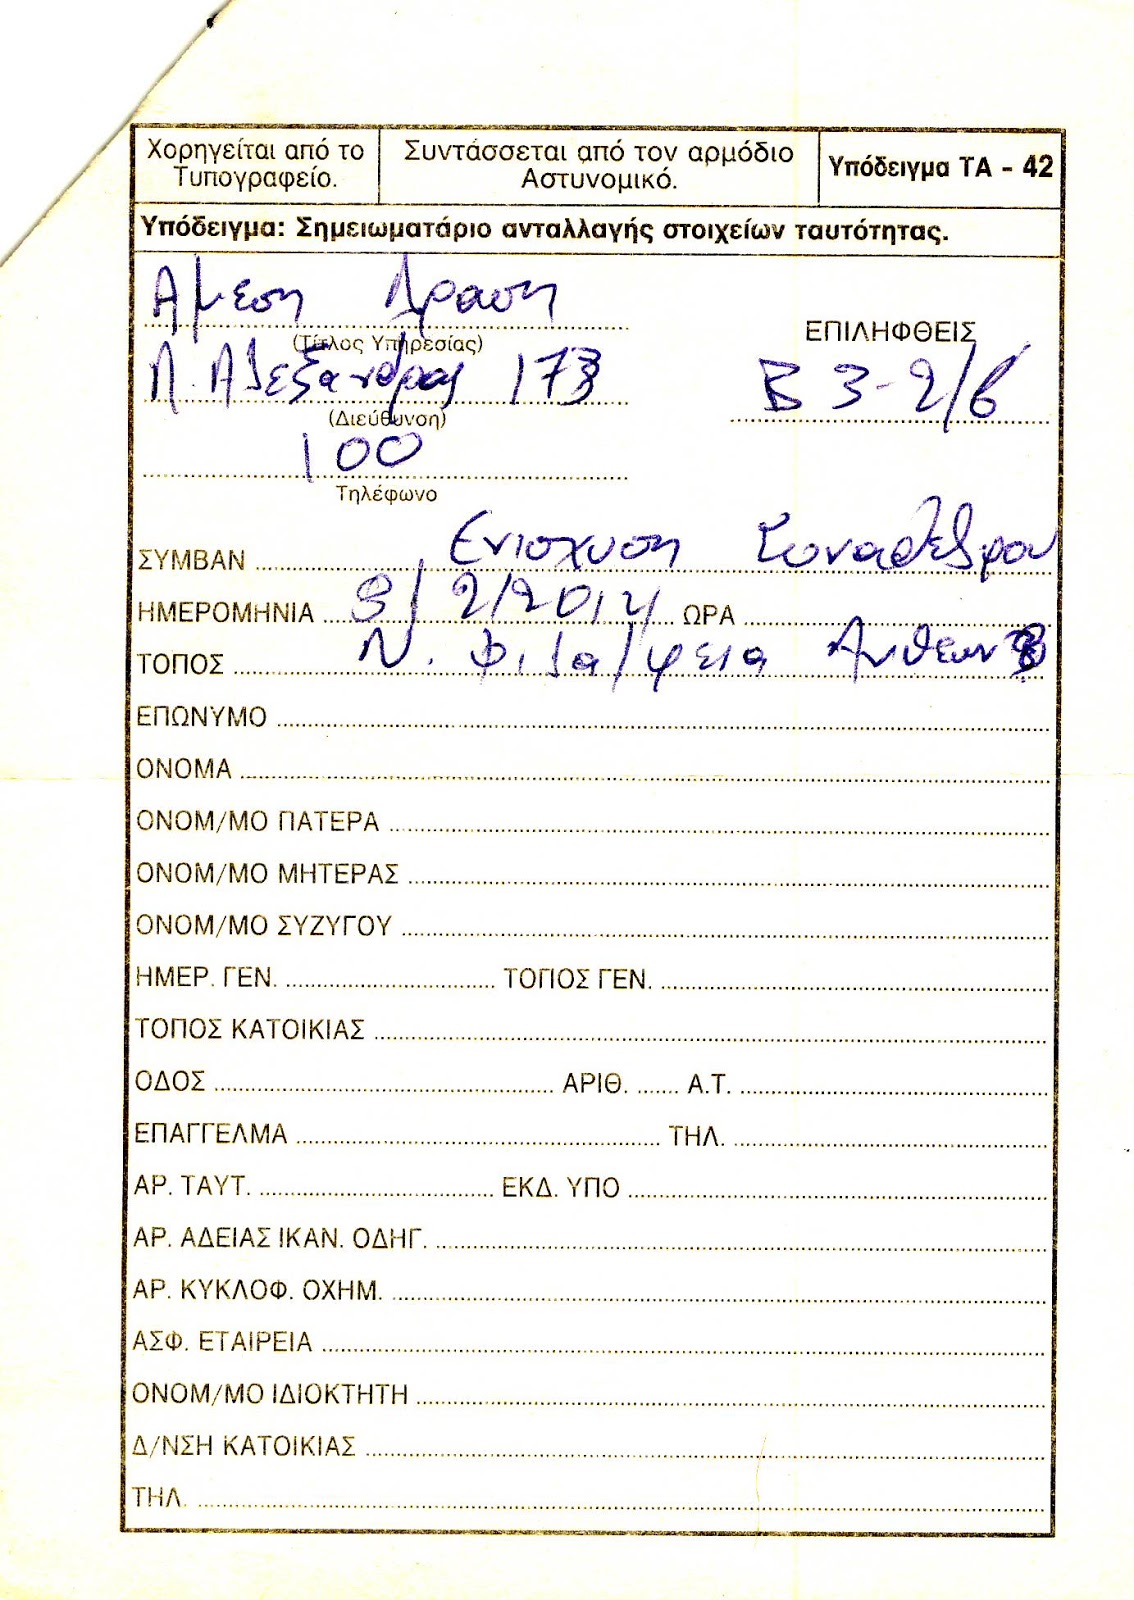 Χορηγείται από το Τυπογραφείο.
Συντάσσεται από τον αρμόδιο Αστυνομικό.
Υπόδειγμα ΤΑ - 42
Υπόδειγμα: Σημειωματάριο ανταλλαγής στοιχείων ταυτότητας.
Άμεση Δράση
(Τίτλος Υπηρεσίας)
ΕΠΙΛΗΦΘΕΙΣ
Λ. Αλεξάνδρας 173
Β 3-2/β
(Διεύθυνση)
100
Τηλέφωνο
ΣΥΜΒΑΝ Ενίσχυση Συναδέλφου
ΗΜΕΡΟΜΗΝΙΑ 8/2/2014 ΩΡΑ
ΤΟΠΟΣ Ν. Φιλαδέλφεια Ανθέων
ΕΠΩΝΥΜΟ
ΟΝΟΜΑ
ΟΝΟΜ/ΜΟ ΠΑΤΕΡΑ
ΟΝΟΜ/ΜΟ ΜΗΤΕΡΑΣ
ΟΝΟΜ/ΜΟ ΣΥΖΥΓΟΥ
ΗΜΕΡ. ΓΕΝ. ΤΟΠΟΣ ΓΕΝ.
ΤΟΠΟΣ ΚΑΤΟΙΚΙΑΣ
ΟΔΟΣ ΑΡΙΘ. Α.Τ.
ΕΠΑΓΓΕΛΜΑ ΤΗΛ.
ΑΡ. ΤΑΥΤ. ΕΚΔ. ΥΠΟ
ΑΡ. ΑΔΕΙΑΣ ΙΚΑΝ. ΟΔΗΓ.
ΑΡ. ΚΥΚΛΟΦ. ΟΧΗΜ.
ΑΣΦ. ΕΤΑΙΡΕΙΑ
ΟΝΟΜ/ΜΟ ΙΔΙΟΚΤΗΤΗ
Δ/ΝΣΗ ΚΑΤΟΙΚΙΑΣ
ΤΗΛ.